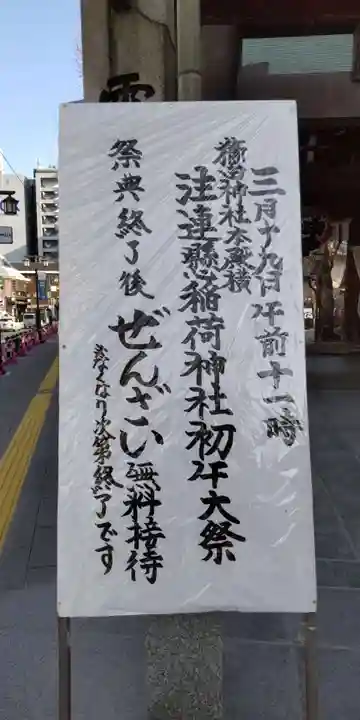 三月十九日午前十一時
櫛田神社本殿横
注連懸稲荷神社初午大祭
祭典終了後
ぜんざい無料接待
まなくなり次第終了です